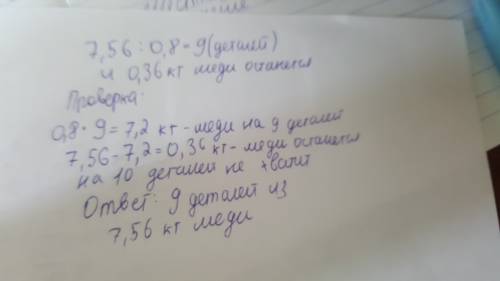 7,56 : 0,8 = 9 (деталей)
и 0,36 кг меди останется
Проверка:
0,8 · 9 = 7,2 кг - меди на 9 деталей
7,56 - 7,2 = 0,36 кг - меди останется
на 10 деталей не хватит
Ответ: 9 деталей из
7,56 кг меди